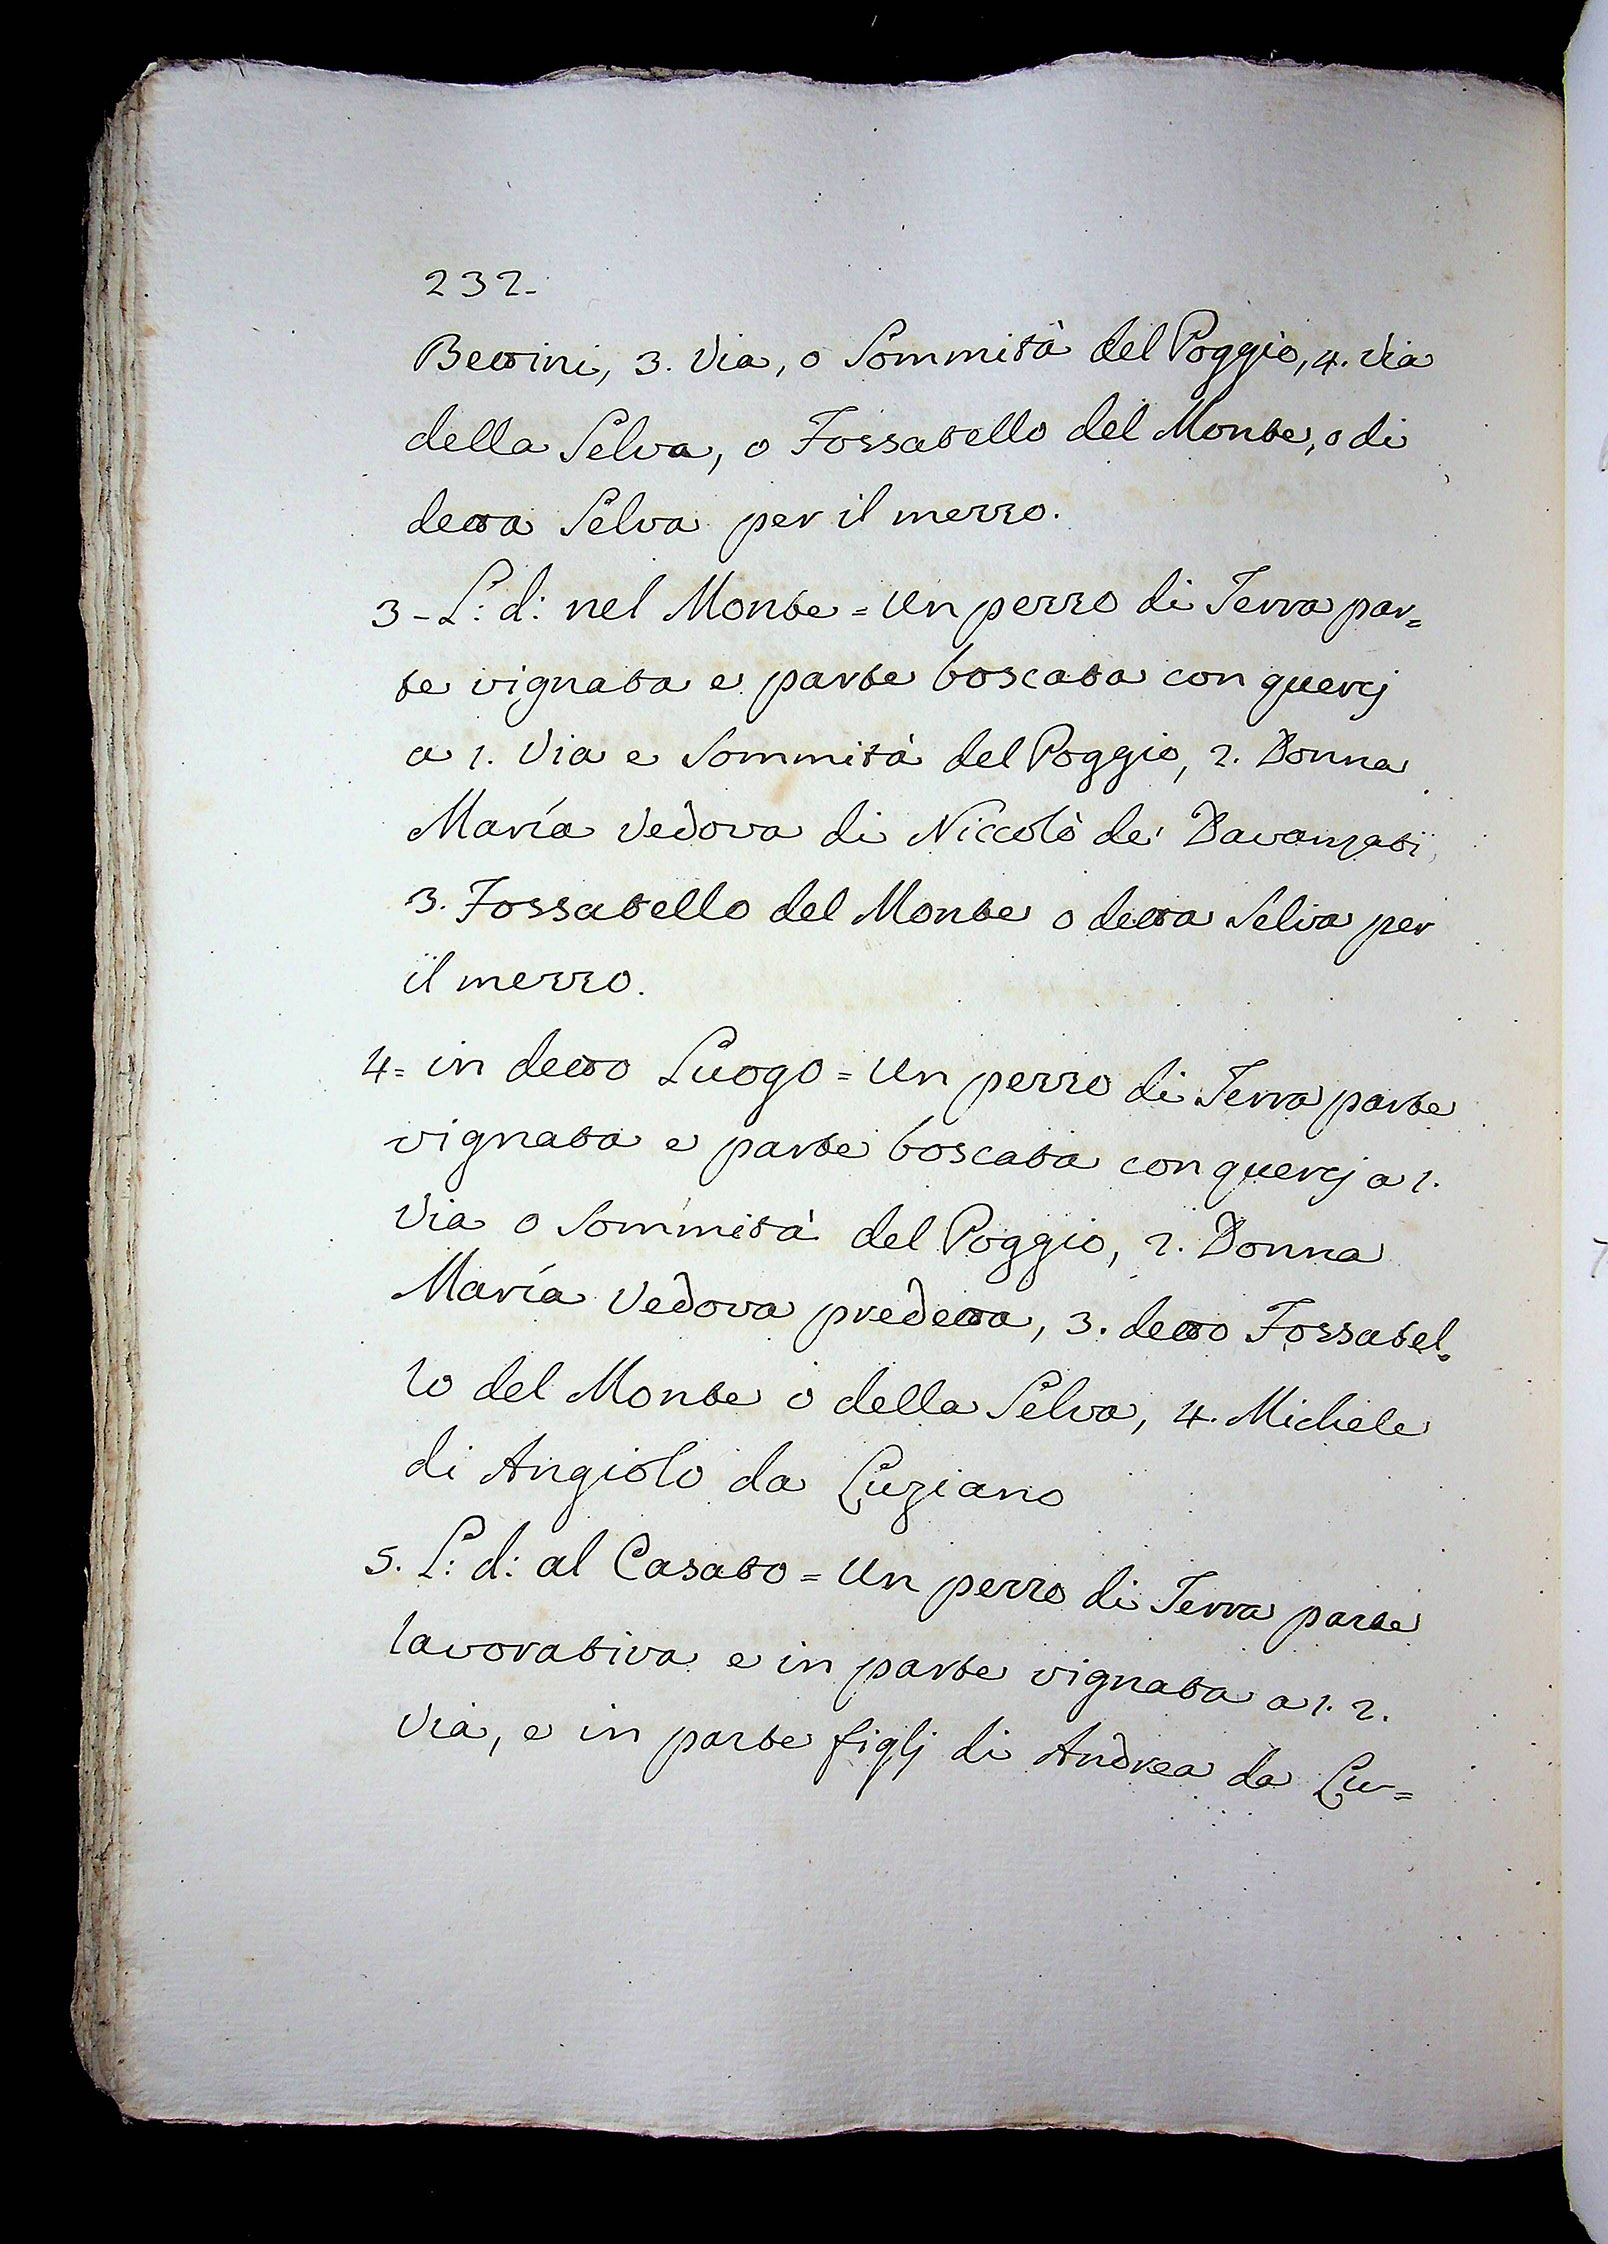 232.
Bettini, 3. Via, o Sommità del Poggio, 4. Via
della Selva, o Fossatello del Monte, o di
detta Selva per il mezzo.
3 - L: d: nel Monte = Un pezzo di Terra par=
te vignata e parte boscata con quercj
a 1. Via e Sommità del Poggio, 2. Donna
María Vedova di Niccolò de' Davanzati
3. Fossatello del Monte o detta Selva per
il mezzo.
4 = in detto Luogo = Un pezzo di Terra parte
vignata e parte boscata con quercj a 1.
Via o Sommità del Poggio, 2. Donna
María Vedova predetta, 3. detto Fossatel=
lo del Monte o della Selva, 4. Michele
di Angiolo da Luziano
5. L: d: al Casato = Un pezzo di Terra parte
lavorativa e in parte vignata a 1. 2.
Via, e in parte figlj di Andrea da Lu=